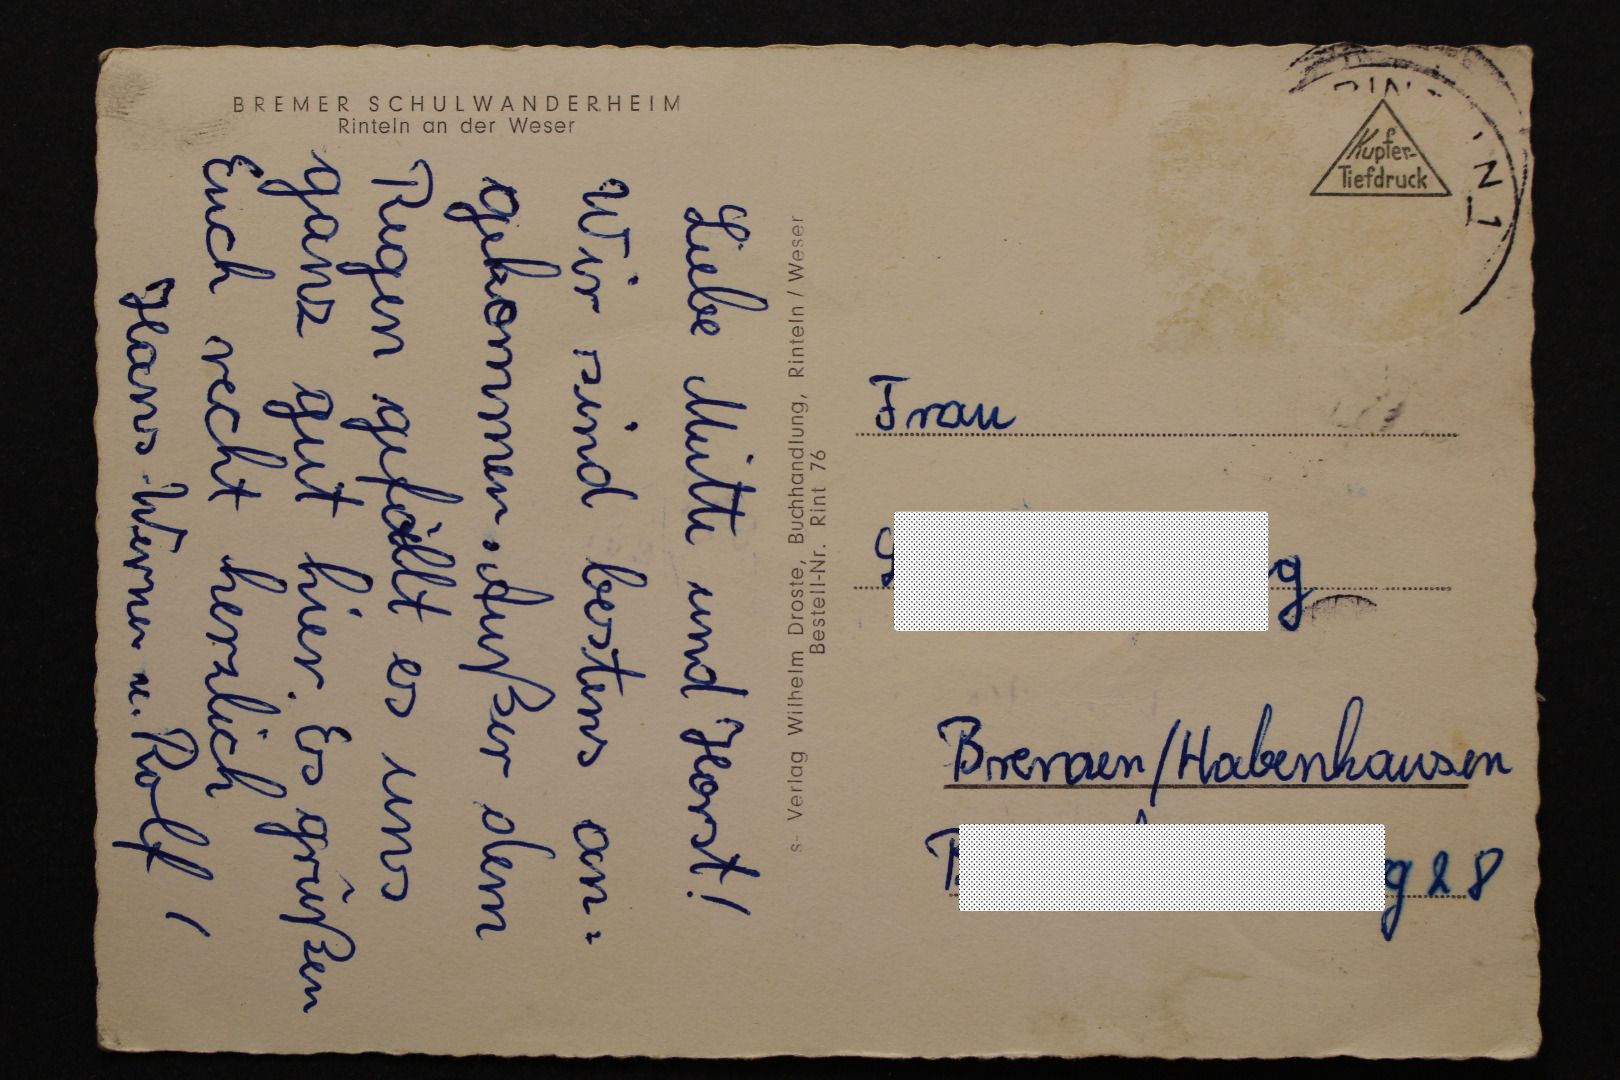 BREMER SCHULWANDERHEIM
Rinteln an der Weser
Liebe Mutti und Horst!
Wir sind bestens an=
gekommen. Außer dem
Regen gefällt es uns
ganz gut hier. Es grüßen
Euch recht herzlich
Hans-Werner u. Rolf!
s- Verlag Wilhelm Droste, Buchhandlung, Rinteln / Weser
Bestell-Nr. Rint 76
Kupfer-
Tiefdruck
Frau
g
Bremen/Habenhausen
g 28